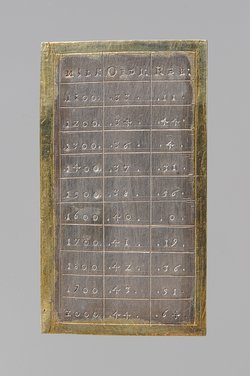 1100. .33. .11.
1200 .34. .44.
1300. .36. .4
1400 .37. .31.
1500 .38. .56.
1600 .40. .0.
1700. .41. .19.
1800 .42. .36.
1900 .43. .51.
2000 .44. .64